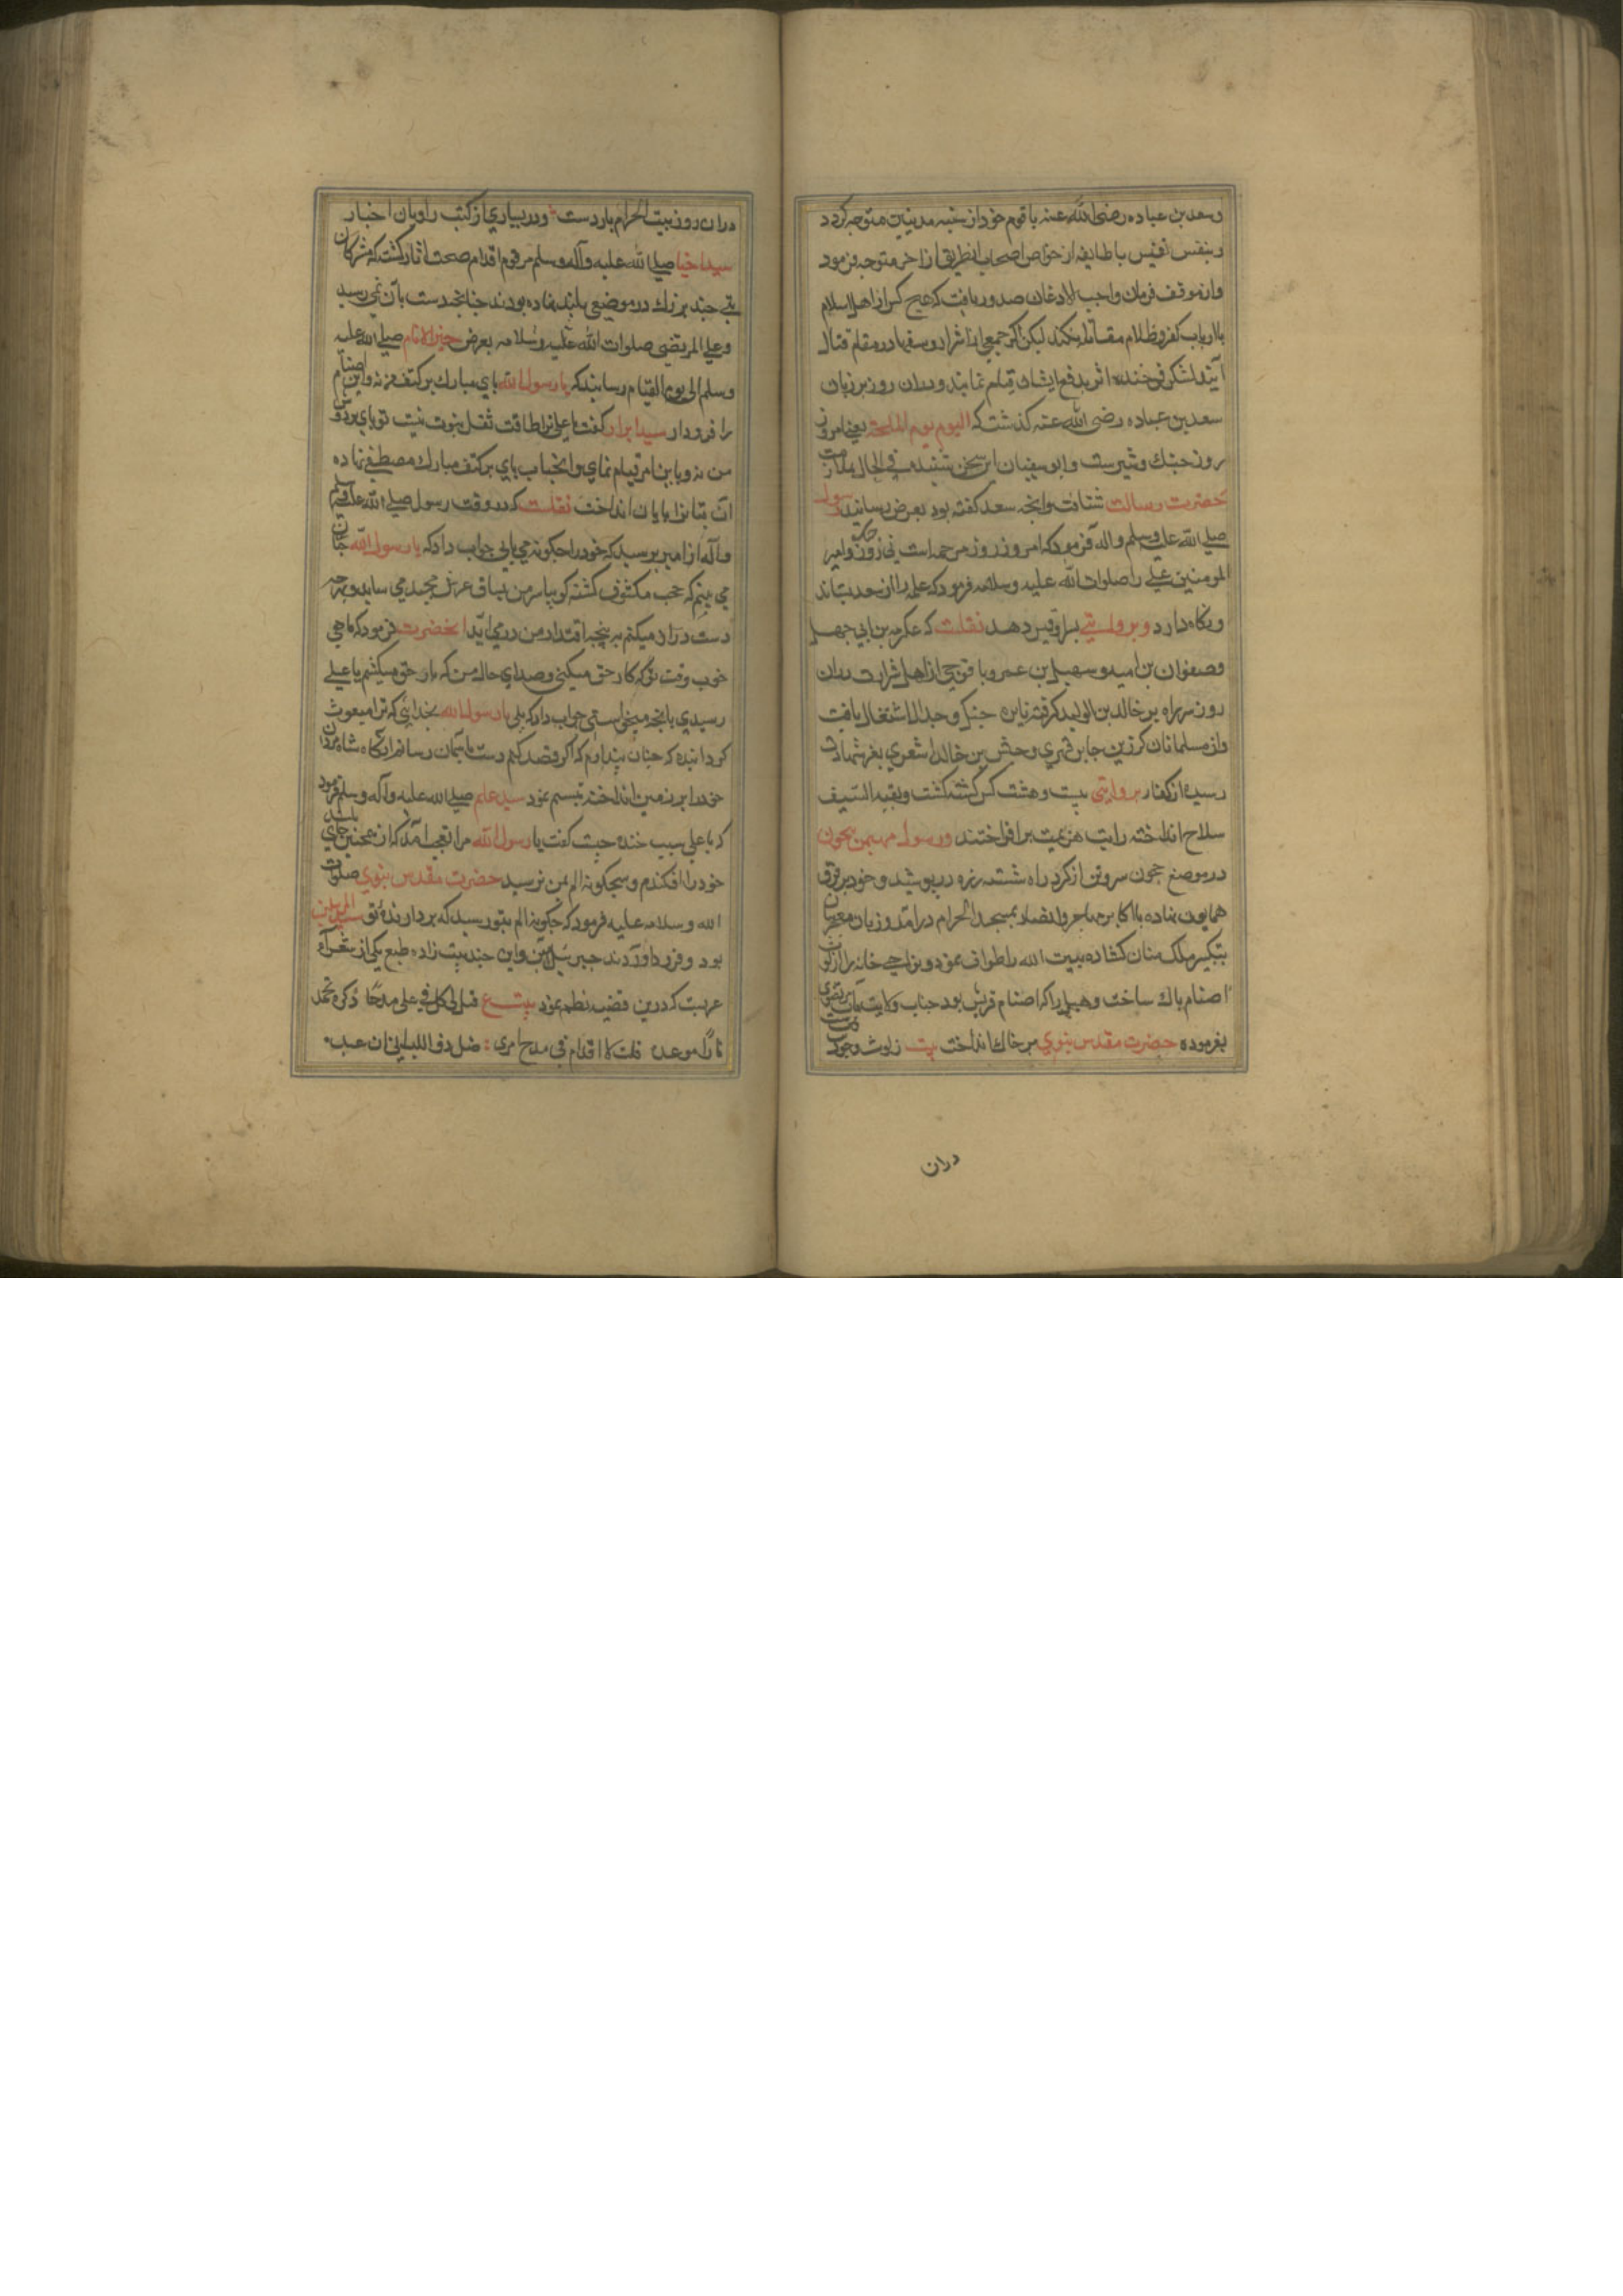 وسعد بن عباده رضی الله عنه با قوم خود از شبه مدینین متوجه کردد
وبنفس نفیس با طایفه از خواص اصحاب از طریق از اخر متوجه فرمود
وازموقف فرمان واجب الاذعان صدور یافت که هیچ کس از اهل اسلام
باارباب کفر وظلام مقاتله نکند لیکن اکر جمعی از اشرار وسفها در مقام قتال
آیند لشکر فرخنده اثر بدفع ایشان قیام نمایند ودران روز بر زبان
سعد بن عباده رضی الله عنه کذشت که الیوم یوم الملحمة یعنی امروز
روز جنك وشیرست وابو سفیان این سخن شنیده فی الحال بملازمت
حضرت رسالت شتافت وانچه سعد کفته بود بعرض رسانید رسول
صلی الله علیه وسلم واله فرمود که امروز روز مرحمه است نی روز جنك وامیر
المومنین علی را صلوات الله علیه وسلامه فرمود که علم را از سعد بستاند
ونکاه دارد وبروایتی بسر او قیس دهد نقلست که عکرمه بن ابی جهل
وصفوان بن امیه وسهیل بن عمرو با فوجی از اهل شرارت دران
روز سر راه بر خالد بن الولید کرفته نایره جنك وجدال اشتعال یافت
واز مسلمانان کرز بن جابر فهری وحبش بن خالد اشعری بعز شهادت
رسیده از کفار بروایتی بیست وهشت کس کشته کشت وبقیه السیف
سلاح انداخته رایت هزیمت برافراختند ورسول مهیمن بیچون
در موضع حجون سر وتن از کرد راه شسته زره در پوشید وخود بر فرق
همایون نهاده با اکابر مهاجر وانصار بمسجد الحرام درامد وزبان معجز بیان
بتکبیر ملك منان کشاده بیت الله را طواف نمود ونواحی خانه را از لوث
اصنام پاك ساخت وهبل را که اصنام قریش بود جناب ولایت مآب مرتضوی
بفرموده حضرت مقدس نبوی بر خاك انداخت بیت ز لوث وجود
دران
دران روز بیت الحرام بازرست ودر بسیاری از کتب راویان اخبار
سید اخیار صلی الله علیه وآله وسلم مرقوم اقدام صحت اثار کشت که مشرکان
بتی چند بزرك در موضعی بلند نهاده بودند چنانچه دست بآن نمی رسید
وعلی المرتضی صلوات الله علیه وسلامه بعرض خیر الانام صلی الله علیه
وسلم الی یوم القیام رسانید که یا رسول الله پای مبارك بر کتف من نه واین اصنام
را فرود ار سید ابرار کفت یا علی ترا طاقت ثقل نبوت نیست تو پای بر دوش
من نه وباین امر قیام نمای وانجناب پای بر کتف مبارك مصطفی نهاده
آن بتانرا بپایان انداخت نقلست که در وقت رسول صلی الله علیه وسلم
وآله از امیر پرسید که خود را چکونه می یابی جواب داد که یا رسول الله چنان
می بینم که حجب مکشوف کشته کویا سر من بساق عرش مجید می ساید وبهرچه
دست دراز میکنم به پنجه اقتدار من درمی اید انحضرت فرمود که یا علی
خوب وقت تو که کار حق میکنی وحبذا ی حال من که بار حق میکشم یا علی
رسیدی بانچه میخواستی جواب داد که بلی یا رسول الله بخدایی که ترا مبعوث
کردانیده که چنان پندارم که اکر قصد کنم دست باسمان رسانم انکاه شاه مردان
خود را بر زمین انداخته تبسم نمود سید عالم صلی الله علیه وآله وسلم فرمود
که یا علی سبب خنده چیست کفت یا رسول الله مرا تعجب آمد که از همچنین جای بلند
خود را افکندم وهیچکونه الم بمن نرسید حضرت مقدس نبوی صلوات
الله وسلامه علیه فرمود که چکونه الم بتو رسید که بردارنده تو سید المرسلین
بود وفرود اورنده جبرئیل امین واین چند بیت زاده طبع یکی از شعراء
عربست که درین قضیه نظم نمود قیل لی قل فی علی مدحا ذکره یخمد
نارا موصده قلت لا اقدام فی مدح امری ضل ذو اللب الی ان عبد